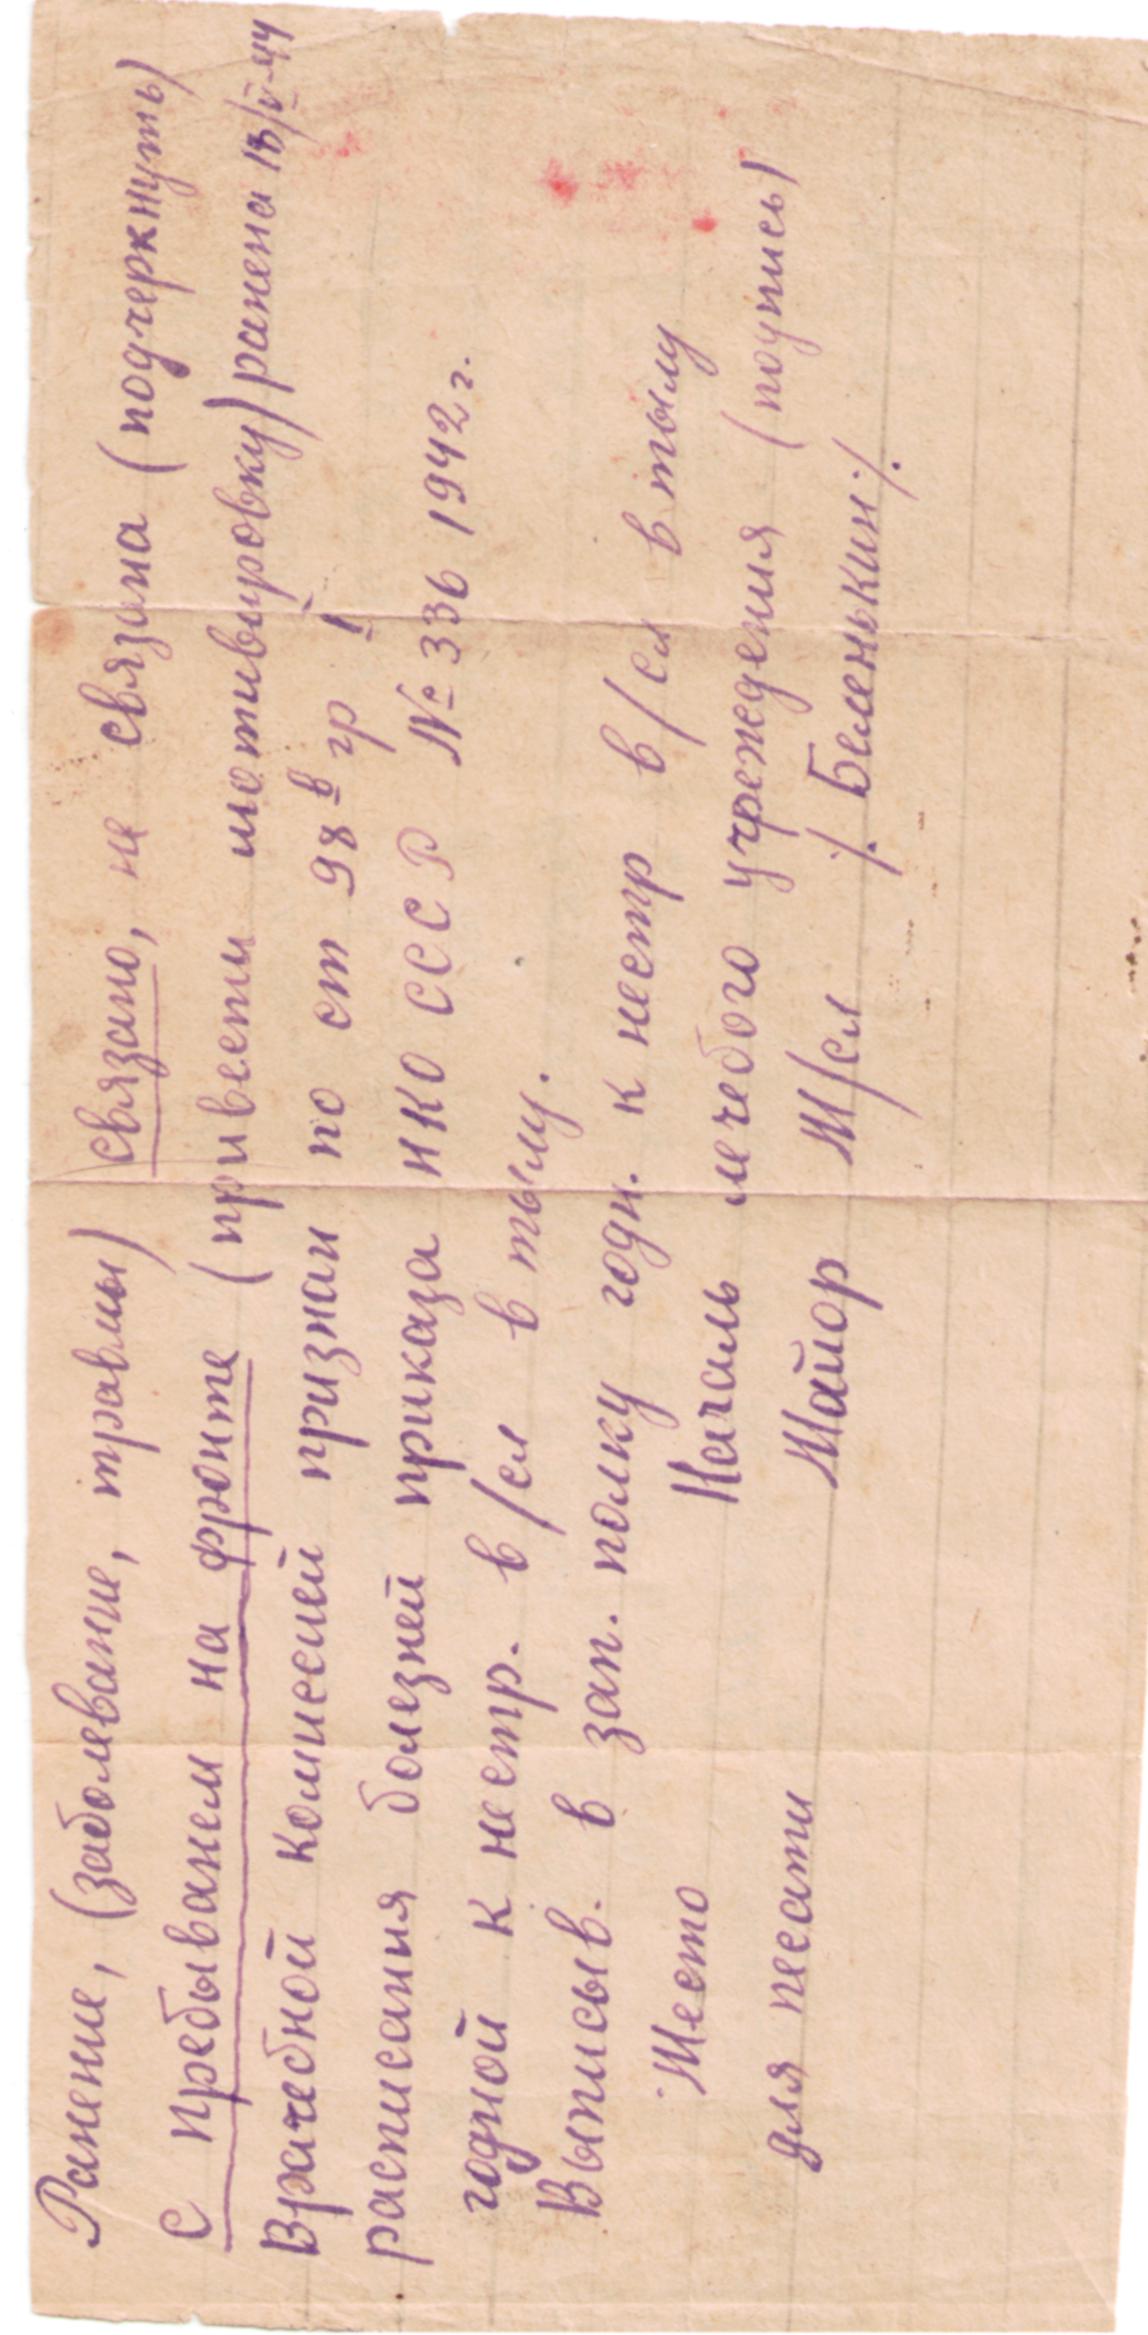 Ранение, (заболевание, травмы) связано, не связана (подчеркнуть)
с пребыванем на фронте (привести мотивировку) ранена 18/V-44
Врачебной комиссией признан по ст 98 в гр I
расписания болезней приказа НКО СССР № 336 1942 г.
годной к нестр. в/сл в тылу.
Выписыв. в зап. полку годн. к нестр в/сл в тылу
Место Началь лечебого учреждения (подпись)
для песати Майор М/сл /. Беленький /.